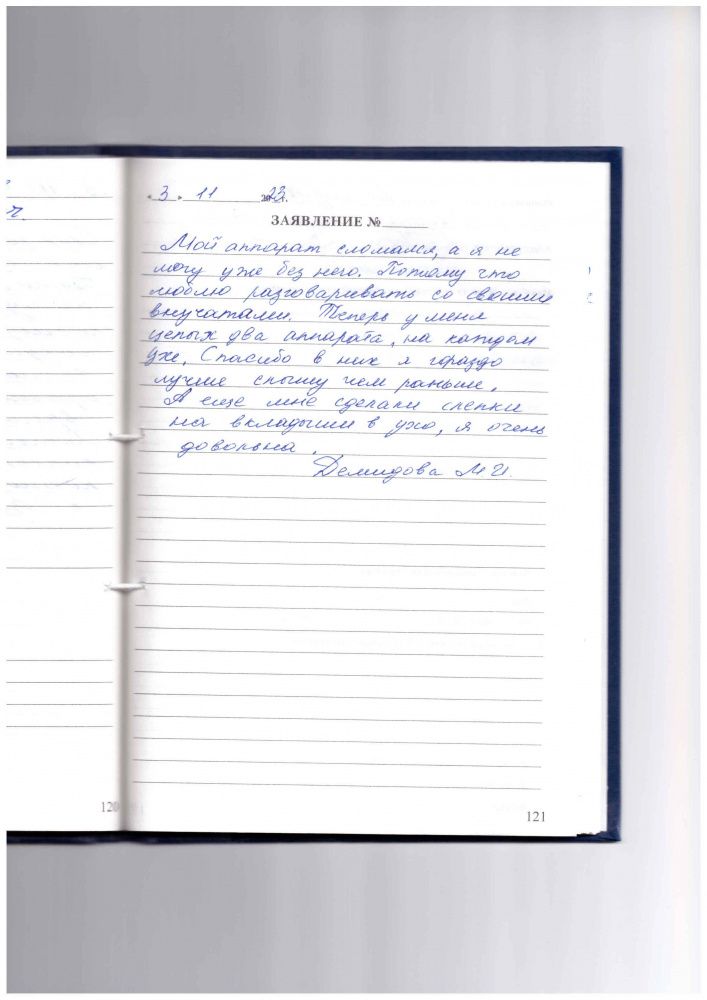 « 3 » 11 2023 г.
ЗАЯВЛЕНИЕ №
Мой аппарат сломался, а я не
могу уже без него. Потому что
люблю разговаривать со своими
внучатами. Теперь у меня
целых два аппарата, на каждом
ухе. Спасибо в них я гораздо
лучше слышу чем раньше.
А еще мне сделали слепки
на вкладыши в ухо, я очень
довольна.
Демидова М.И.
120
121